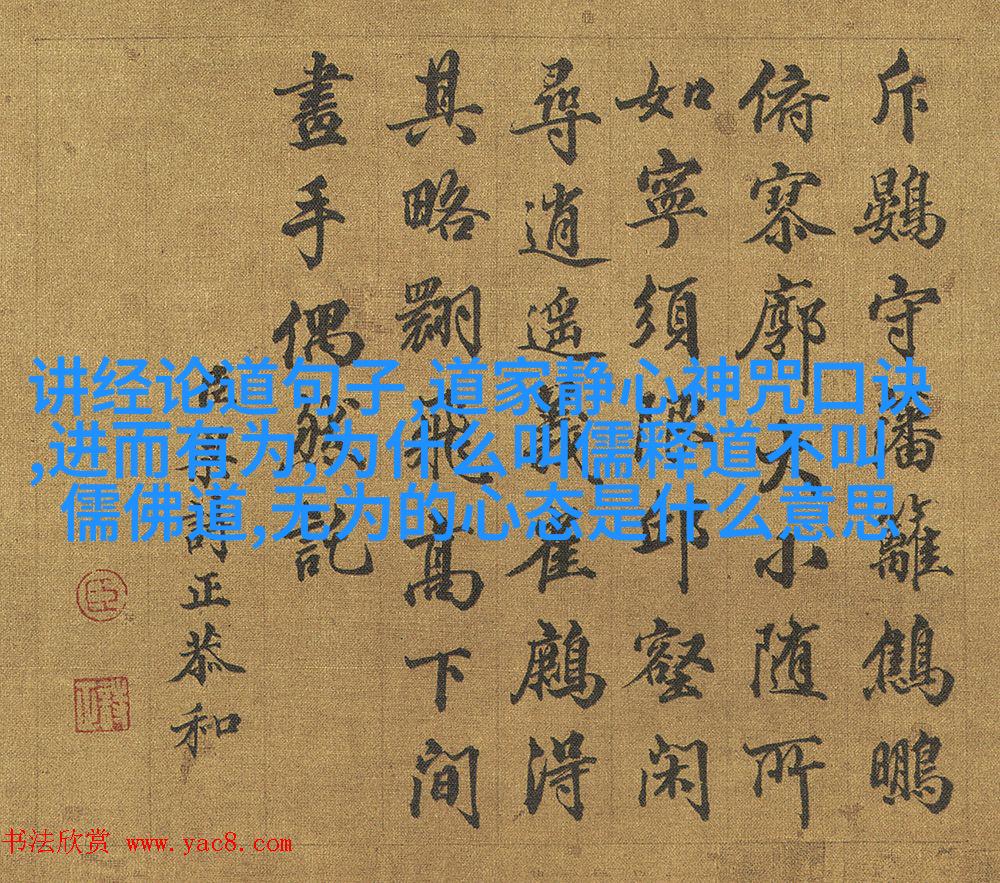 斥鷃守藩籬鷦鵬
俯寥廓大小随所
如寧須邱壑閑
尋逍遥義雀得
其略翾飛髙下間
畫手偶然記
臣梁詩正恭和
讲经论道句子,道家静心神咒口诀
,进而有为,为什么叫儒释道不叫
儒佛道,无为的心态是什么意思
书法欣赏 www.yac8.com